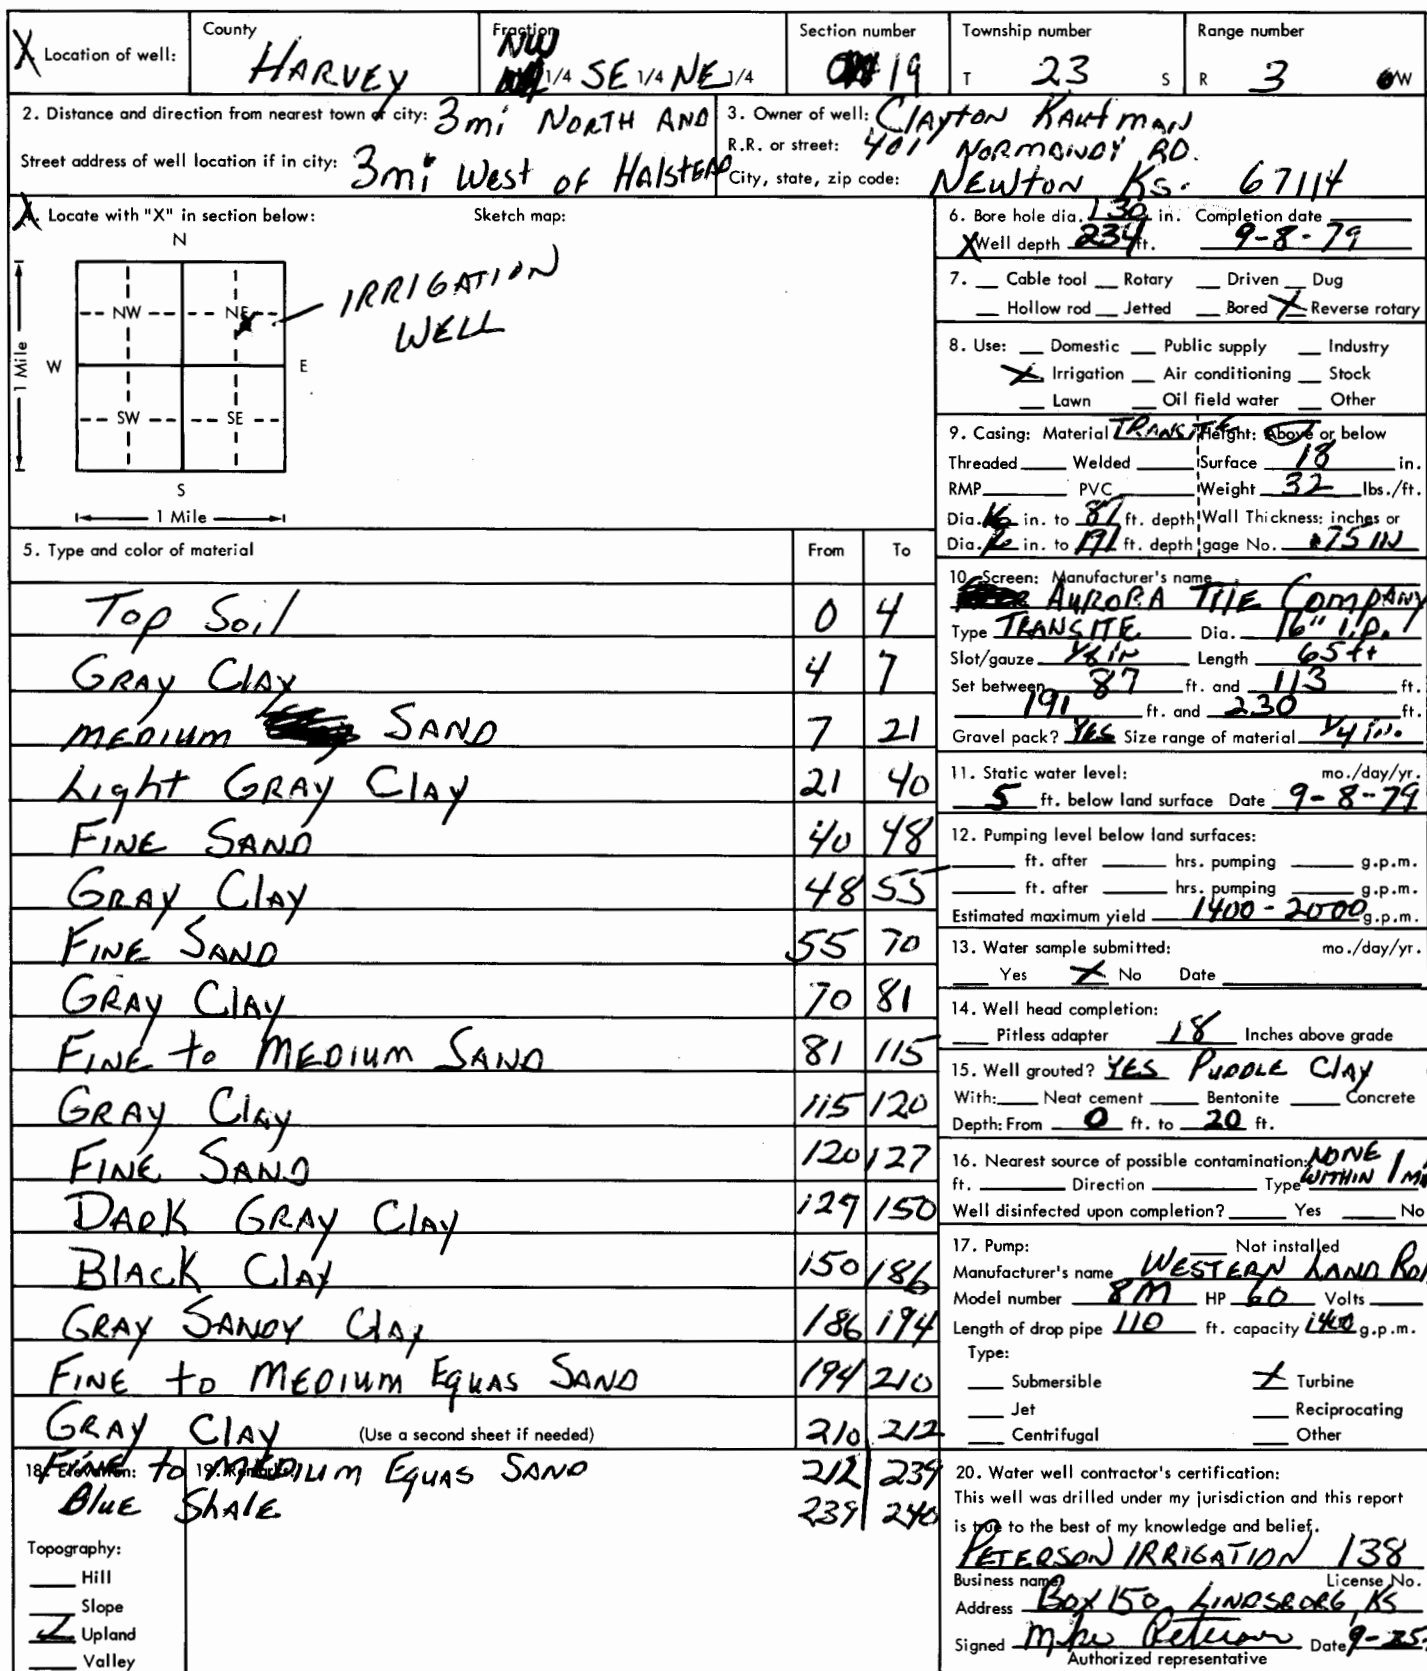 X Location of well: County HARVEY Fraction NW 1/4 SE 1/4 NE 1/4 Section number 19 Township number T 23 S Range number R 3 W
2. Distance and direction from nearest town of city: 3mi NORTH AND
Street address of well location if in city: 3mi West of HAlSTEAD
3. Owner of well: ClAYTON KAUFMAN
R.R. or street: 401 NORMANDY RD.
City, state, zip code: NEWTON Ks. 67114
X 4. Locate with "X" in section below: Sketch map:
N
NW NE
W E
SW SE
S
1 Mile
1 Mile
IRRIGATION
WELL
6. Bore hole dia. 30 in. Completion date
X Well depth 234 ft. 9-8-79
7. Cable tool Rotary Driven Dug
Hollow rod Jetted Bored X Reverse rotary
8. Use: Domestic Public supply Industry
X Irrigation Air conditioning Stock
Lawn Oil field water Other
9. Casing: Material TRANSITE Height: Above or below
Threaded Welded Surface 18 in.
RMP PVC Weight 32 lbs./ft.
Dia. 16 in. to 87 ft. depth Wall Thickness: inches or
Dia. in. to 191 ft. depth gage No. .75 IN
10. Screen: Manufacturer's name
AURORA TIlE COMPANY
Type TRANSITE Dia. 16" I.D.
Slot/gauze 1/8 in Length 65 ft
Set between 87 ft. and 113 ft.
191 ft. and 230 ft.
Gravel pack? YES Size range of material 1/4 in.
11. Static water level: mo./day/yr.
5 ft. below land surface Date 9-8-79
12. Pumping level below land surfaces:
ft. after hrs. pumping g.p.m.
ft. after hrs. pumping g.p.m.
Estimated maximum yield 1400 - 2000 g.p.m.
13. Water sample submitted: mo./day/yr.
Yes X No Date
14. Well head completion:
Pitless adapter 18 Inches above grade
15. Well grouted? YES PUDDLE ClAY
With: Neat cement Bentonite Concrete
Depth: From 0 ft. to 20 ft.
16. Nearest source of possible contamination: NONE
ft. Direction Type WITHIN 1 Mi
Well disinfected upon completion? Yes No
17. Pump: Not installed
Manufacturer's name WESTERN LAND Rol
Model number 8M HP 60 Volts
Length of drop pipe 110 ft. capacity 1400 g.p.m.
Type:
Submersible X Turbine
Jet Reciprocating
Centrifugal Other
5. Type and color of material From To
Top Soil 0 4
GRAY ClAY 4 7
MEDIUM SAND 7 21
Light GRAY ClAY 21 40
FINE SAND 40 48
GRAY ClAY 48 55
FINE SAND 55 70
GRAY ClAY 70 81
FINE to MEDIUM SAND 81 115
GRAY ClAY 115 120
FINE SAND 120 127
DARK GRAY ClAY 127 150
BlAcK ClAY 150 186
GRAY SANDY ClAY 186 194
FINE to MEDIUM EQUAS SAND 194 210
GRAY ClAY (Use a second sheet if needed) 210 212
FINE to MEDIUM EQUAS SAND 212 239
BluE ShAlE 239 240
18. Elevation: 19. Remarks:
Topography:
Hill
Slope
Upland
Valley
20. Water well contractor's certification:
This well was drilled under my jurisdiction and this report
is true to the best of my knowledge and belief.
PETERSON IRRIGATION 138
Business name License No.
Address BOX 150 LINDSBORG, KS
Signed Mike Peterson Date 9-25
Authorized representative